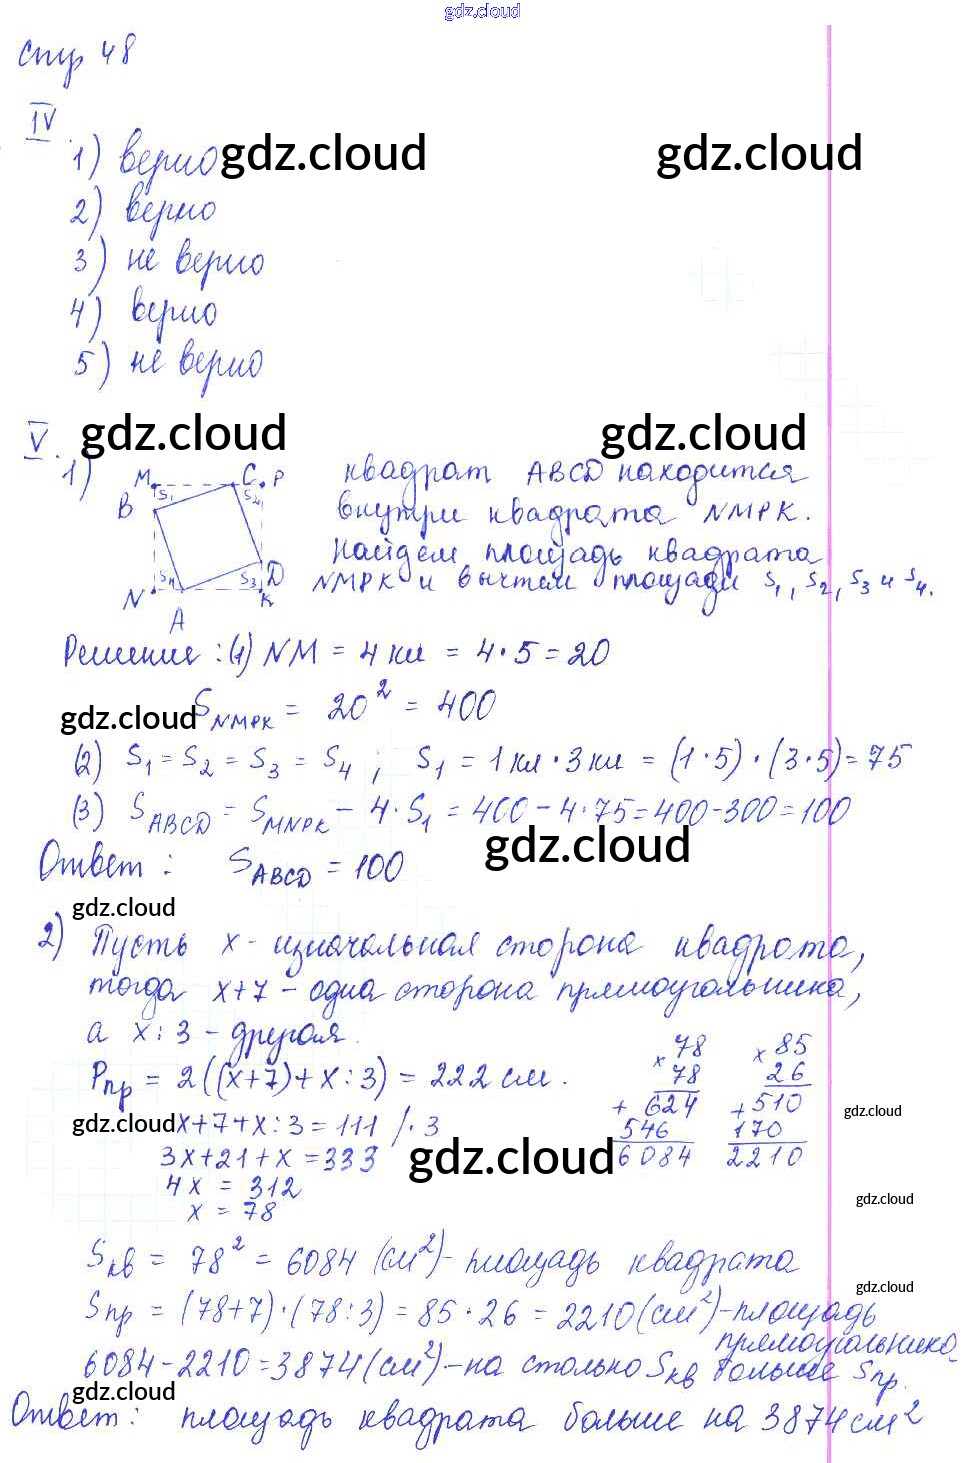 gdz.cloud
стр 48
IV
1) верно gdz.cloud gdz.cloud
2) верно
3) не верно
4) верно
5) не верно
V. gdz.cloud gdz.cloud
1)
M C P
S₁ S₂
B
S₄ S₃ D
N K
A
квадрат ABCD находится
внутри квадрата NMPK.
Найдём площадь квадрата
NMPK и вычтем площади S₁, S₂, S₃ и S₄.
Решение: (1) NM = 4 кл = 4·5 = 20
gdz.cloud S_NMPK = 20² = 400
(2) S₁ = S₂ = S₃ = S₄ ; S₁ = 1 кл · 3 кл = (1·5)·(3·5) = 75
(3) S_ABCD = S_MNPK − 4·S₁ = 400 − 4·75 = 400 − 300 = 100
gdz.cloud
Ответ: S_ABCD = 100
gdz.cloud
2) Пусть x - изначальная сторона квадрата,
тогда x+7 - одна сторона прямоугольника,
а x:3 - другая.
Pпр = 2((x+7)+x:3) = 222 см.
gdz.cloud x+7+x:3 = 111 /·3
3x+21+x = 333 gdz.cloud
4x = 312
x = 78
× 78
78
+ 624
546
6084
× 85
26
+ 510
170
2210
gdz.cloud
gdz.cloud
Sкв = 78² = 6084 (см²) - площадь квадрата
gdz.cloud
Sпр = (78+7)·(78:3) = 85·26 = 2210 (см²) - площадь
прямоугольника
6084 − 2210 = 3874 (см²) - на столько Sкв больше Sпр.
gdz.cloud gdz.cloud
Ответ: площадь квадрата больше на 3874 см²